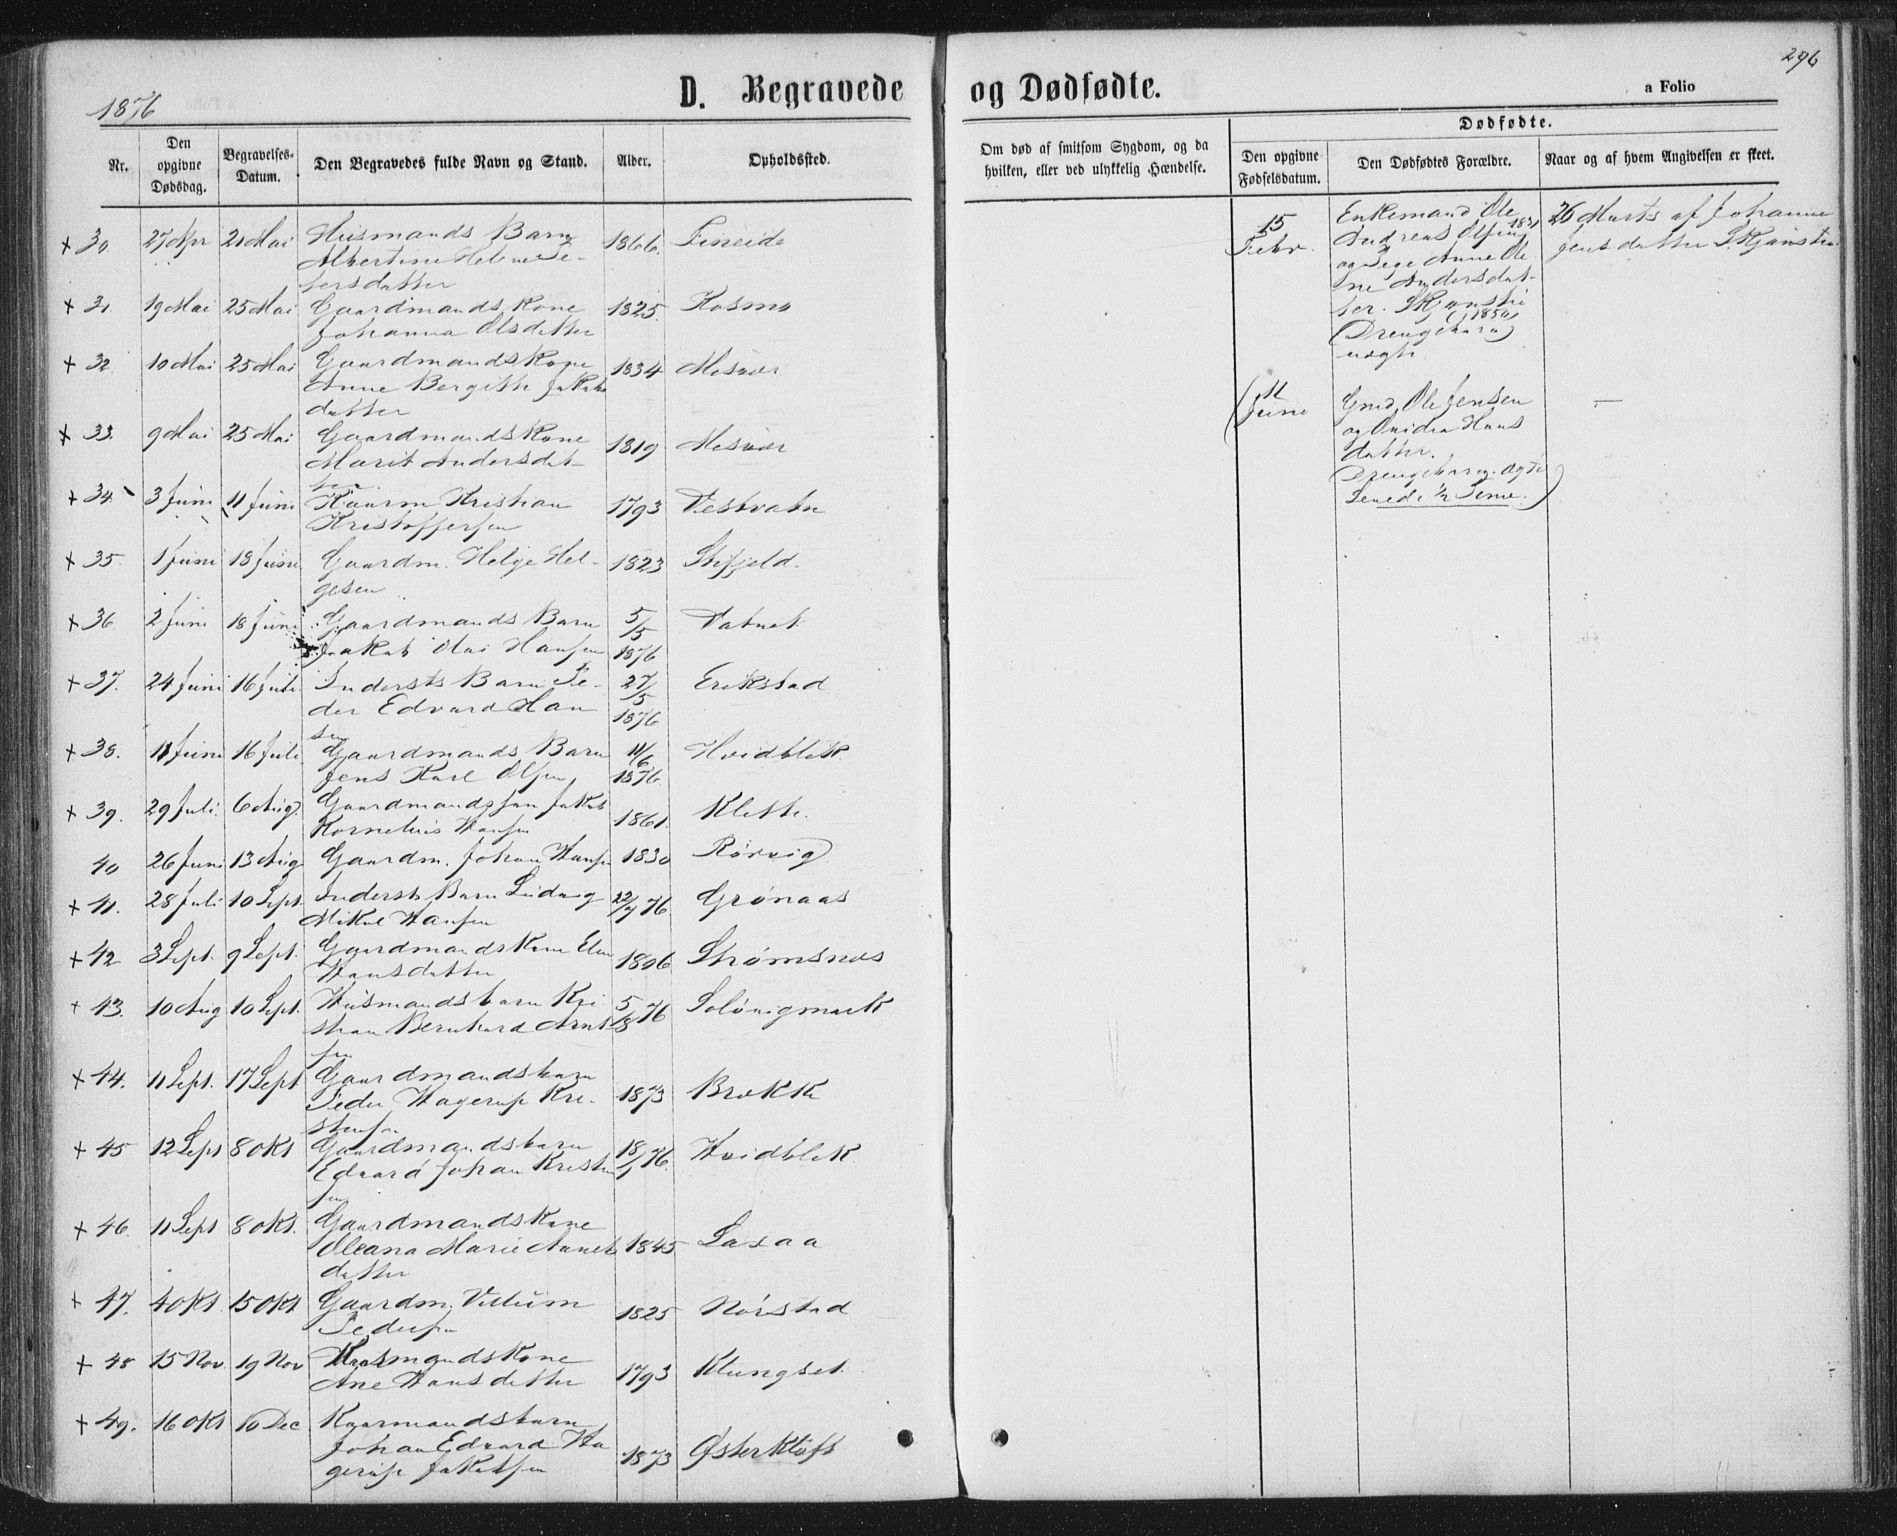 296
1876
D. Begravede og Dødfødte.
a Folio
Nr.
Den opgivne Dødsdag.
Begravelses-Datum.
Den Begravedes fulde Navn og Stand.
Alder.
Opholdsted.
Om død af smitsom Sygdom, og da hvilken, eller ved ulykkelig Hændelse.
Dødfødte.
Den opgivne Fødselsdatum.
Den Dødfødtes Forældre.
Naar og af hvem Angivelsen er skeet.
+ 30. 27 Apr 21 Mai Husmands Barn 1866. Fineide
Albertine Helene Pe-
dersdatter
+ 31 19 Mai 25 Mai Gaardmands Kone 1825. Kosmo
Johanna Olsdatter
+ 32 10 Mai 25 Mai Gaardmands Kone 1834 Mesvær
Anne Bergitte Jakobs
datter
+ 33. 9 Mai 25 Mai Gaardmands Kone 1819 Mesvær
Marit Andersdat-
ter
+ 34. 3 Juni 11 Juni Kaarm Kristian 1793 Vestvatn
Kristoffersen
+ 35. 1 Juni 18 Juni Gaardm. Helge Hel- 1823 Skifjeld.
gesen
+ 36 2 Juni 18 Juni Gaardmands Barn 5/5 1876 Vatnet
Jakob Hansen
+ 37. 24 Juni 16 Juli Inderst Barn Pe- 27/5 1876 Erikstad
der Edvard Han
sen
+ 38. 11 Juni 16 Juli Gaardmands Barn 11/6 1876. Hvidblik
Jens Karl Olsen
+ 39. 29 Juli. 6 Aug. Gaardmandssøn Jakob 1861. Klette.
Kornelius Hansen
40 26 Juni 13 Aug Gaardm. Johan Hansen 1830 Rørvig
+ 41. 28 Juli 10 Sept. Inderst Barn Ludvig 22/7 76. Grønaas
Mikal Hansen
+ 42 3 Sept. 9 Sept. Gaardmands Kone Elen 1806 Strømsnes
Hansdatter
+ 43. 10 Aug 10 Sept. Husmandsbarn Kri 5/8 76 Soløvigmark
stian Bernhard Arnt
sen
+ 44. 11 Sept. 17 Sept Gaardmandsbarn
Peder Hagerup Kri- 1873 Brække
stensen
+ 45 12 Sept 8 Okt Gaardmandsbarn 18/1 76. Hvidblik
Edvard Johan Kristen
sen
+ 46. 11 Sept 8 Okt. Gaardmands Kone
Oleana Marie 1845 Laxaa
datter
+ 47. 4 Okt. 15 Okt Gaardm. Villum 1825 Nørstad
Pedersen
+ 48 15 Nov. 19 Nov Husmands Kone 1793 Klungset.
Ane Hansdatter
+ 49. 16 Okt 10 Dec Kaarmandsbarn
Johan Edvard Ha 1873 Østerkløft
gerup Jakobsen
15 Febr. Enkemand Ole
Andreas Olsen 1831
og Pige Anne Ole
ne Andersdat-
ter. Skjønsti
(1850)
(Drengebarn)
uægte
26 Marts af Johanne
Jensdatter Skjønsti
(11 Juni Gmd. Ole Jensen
og Hans
datter.
Drengebarn. ægte
—